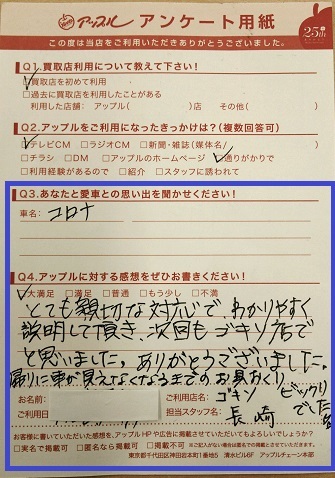 アップル アンケート用紙
25th
この度は当店をご利用いただきありがとうございました。
Q1.買取店利用について教えて下さい!
☑買取店を初めて利用
□過去に買取店を利用したことがある
利用した店舗: アップル( )店 その他( )
Q2.アップルをご利用になったきっかけは?(複数回答可)
☑テレビCM □ラジオCM □新聞・雑誌(媒体名/ )
□チラシ □DM □アップルのホームページ ☑通りがかりで
□利用経験があるので □紹介 □スタッフに誘われて
Q3.あなたと愛車との思い出を聞かせください!
車名: コロナ
Q4.アップルに対する感想をぜひお書きください!
☑大満足 □満足 □普通 □もう少し □不満
とても親切な対応で、わかりやすく
説明して頂き、次回もゴキソ店で
と思いました。ありがとうございました。
帰りに車が見えなくなるまでのお見おくり
ビックリでした
お名前:
ご利用日
ご利用店名: ゴキソ
担当スタッフ名: 長崎
お客様に書いていただいた感想を、アップルHPや広告に掲載させていただいてもよろしいでしょうか?
□実名で掲載可 □匿名なら掲載可 □掲載不可
東京都千代田区神田岩本町1番地5 清水ビル6F アップルチェーン本部